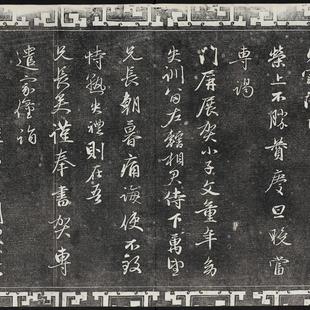 榮上不勝贊慶旦晚當
專謁
門屏展賀小子文童年多
失訓曾左轄相見侍下萬望
兄長朝暮痛誨使不致
恃 失禮則在吾
兄長矣謹奉書賀專
遣家僮詣